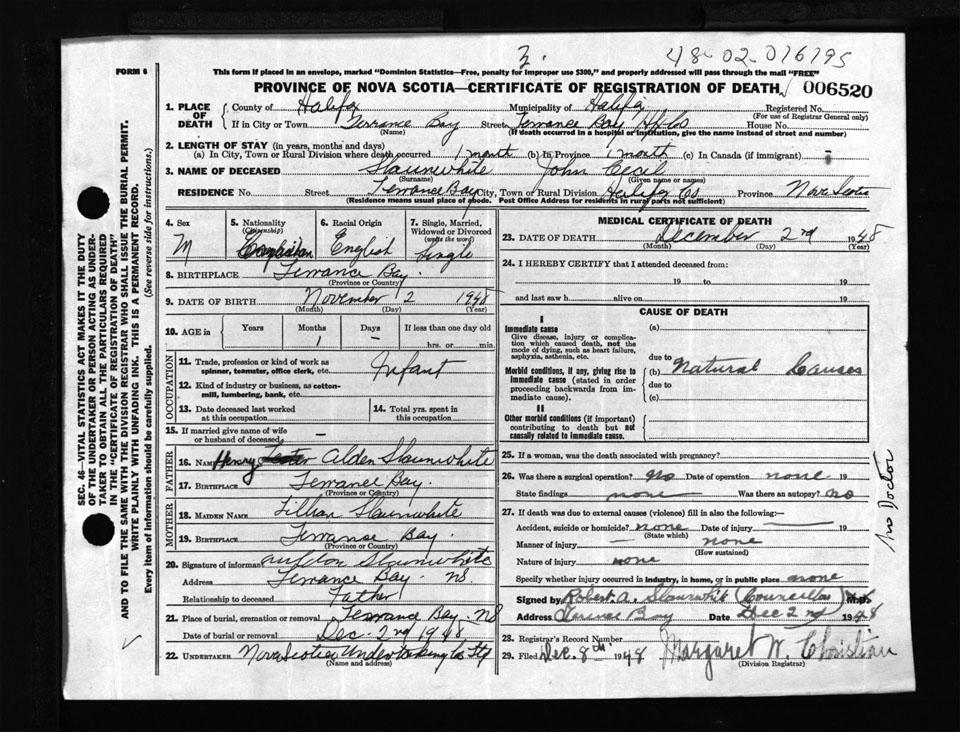 3.
48-02-016195
FORM 6
This form if placed in an envelope, marked "Dominion Statistics—Free, penalty for improper use $300," and properly addressed will pass through the mail "FREE"
PROVINCE OF NOVA SCOTIA—CERTIFICATE OF REGISTRATION OF DEATH
006520
1. PLACE OF DEATH
County of Halifax Municipality of Halifax Registered No.
(For use of Registrar General only)
If in City or Town Terrance Bay Street Terrance Bay Hfx Co House No.
(Name) (If death occurred in a hospital or institution, give the name instead of street and number)
2. LENGTH OF STAY (in years, months and days)
(a) In City, Town or Rural Division where death occurred 1 month (b) In Province 1 month (c) In Canada (if immigrant) -
3. NAME OF DECEASED Slaunwhite John Cecil
(Surname) (Given name or names)
RESIDENCE No. Street Terrance Bay City, Town or Rural Division Halifax Co Province Nova Scotia
(Residence means usual place of abode. Post Office Address for residents in rural parts not sufficient)
4. Sex
M
5. Nationality (Citizenship)
Canadian
6. Racial Origin
English
7. Single, Married, Widowed or Divorced (write the word)
Single
8. BIRTHPLACE Terrance Bay.
(Province or Country)
9. DATE OF BIRTH November 2 1948
(Month) (Day) (Year)
10. AGE in
Years Months Days If less than one day old
1 — hrs. or min.
OCCUPATION
11. Trade, profession or kind of work as spinner, teamster, office clerk, etc. Infant
12. Kind of industry or business, as cotton-mill, lumbering, bank, etc.
13. Date deceased last worked at this occupation
14. Total yrs. spent in this occupation
15. If married give name of wife or husband of deceased —
FATHER
16. NAME Henry Alden Slaunwhite
17. BIRTHPLACE Terrance Bay.
(Province or Country)
MOTHER
18. MAIDEN NAME Lillian Slaunwhite
19. BIRTHPLACE Terranse Bay.
(Province or Country)
20. Signature of informant Slaunwhite
Address Terrance Bay. NS
Relationship to deceased Father
21. Place of burial, cremation or removal Terrance Bay. NS
Date of burial or removal Dec. 2nd 1948
22. UNDERTAKER Nova Scotia Undertaking Co Ltd
(Name and address)
MEDICAL CERTIFICATE OF DEATH
23. DATE OF DEATH December 2nd 1948
(Month) (Day) (Year)
24. I HEREBY CERTIFY that I attended deceased from:
19 to 19
and last saw h alive on 19
CAUSE OF DEATH
I
Immediate cause
Give disease, injury or complication which caused death, not the mode of dying, such as heart failure, asphyxia, asthenia, etc.
(a)
due to
Morbid conditions, if any, giving rise to immediate cause (stated in order proceeding backwards from immediate cause).
(b) Natural Causes
due to
(c)
II
Other morbid conditions (if important) contributing to death but not causally related to immediate cause.
25. If a woman, was the death associated with pregnancy?
26. Was there a surgical operation? No Date of operation none 19
State findings none Was there an autopsy? no
27. If death was due to external causes (violence) fill in also the following:
Accident, suicide or homicide? none Date of injury — 19
(State which)
Manner of injury — none
(How sustained)
Nature of injury none
Specify whether injury occurred in industry, in home, or in public place none
Signed by Robert A. Slaunwhite (Councillor) M.D.
Address Terrance Bay Date Dec 2nd 1948
28. Registrar's Record Number
29. Filed Dec 8th 1948 Margaret W. Christian
(Division Registrar)
No Doctor
SEC. 46—VITAL STATISTICS ACT MAKES IT THE DUTY
OF THE UNDERTAKER OR PERSON ACTING AS UNDER-
TAKER TO OBTAIN ALL THE PARTICULARS REQUIRED
IN THE "CERTIFICATE OF REGISTRATION OF DEATH"
AND TO FILE THE SAME WITH THE DIVISION REGISTRAR WHO SHALL ISSUE THE BURIAL PERMIT.
WRITE PLAINLY WITH UNFADING INK. THIS IS A PERMANENT RECORD.
Every item of information should be carefully supplied. (See reverse side for instructions.)